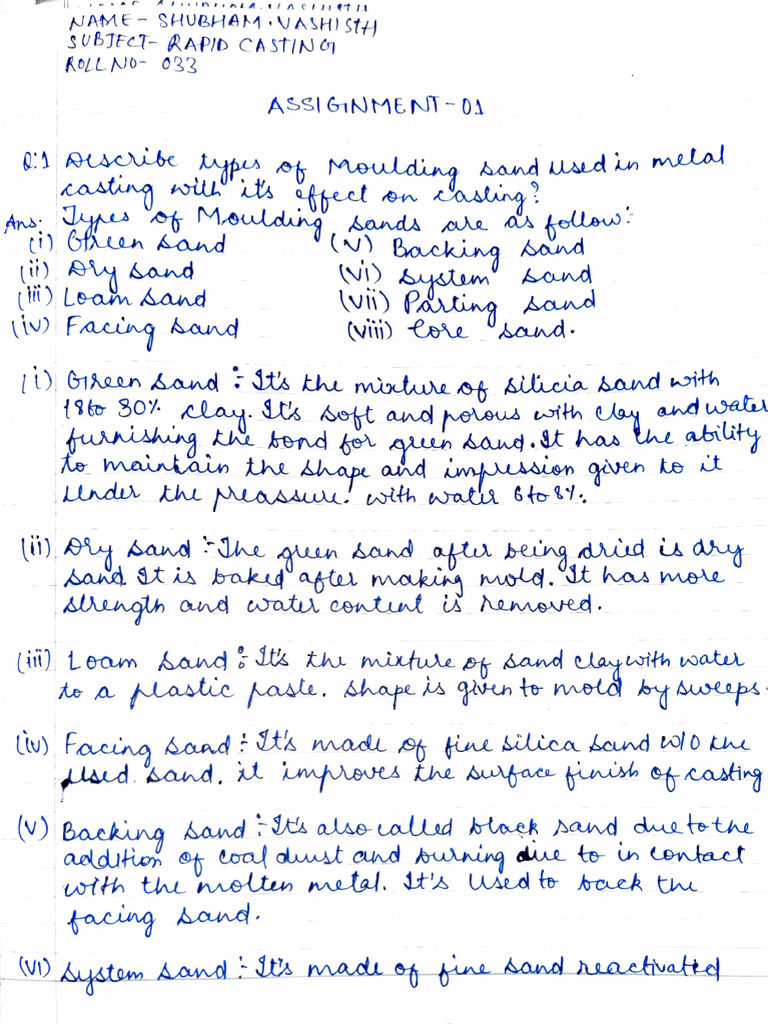 NAME- SHUBHAM.VASHISTH
SUBJECT- RAPID CASTING
ROLL NO- 033
ASSIGNMENT-01
Q:1 Describe types of Moulding sand used in metal
casting with it's effect on casting?
Ans: Types of Moulding sands are as follow:-
(i) Green sand (v) Backing sand
(ii) Dry sand (vi) System sand
(iii) Loam sand (vii) Parting sand
(iv) Facing sand (viii) Core sand.
(i) Green sand :- It's the mixture of silicia sand with
18 to 30% clay. It's soft and porous with clay and water
furnishing the bond for green sand. It has the ability
to maintain the shape and impression given to it
under the preassure. with water 6 to 8%.
(ii) Dry sand :- The green sand after being dried is dry
sand. It is baked after making mold. It has more
strength and water content is removed.
(iii) Loam sand :- It's the mixture of sand clay with water
to a plastic paste. shape is given to mold by sweeps.
(iv) Facing sand :- It's made of fine silica sand w/o the
used sand. it improves the surface finish of casting
(v) Backing sand :- It's also called black sand due to the
addition of coal dust and burning due to in contact
with the molten metal. It's used to back the
facing sand.
(vi) System sand :- It's made of fine sand reactivated